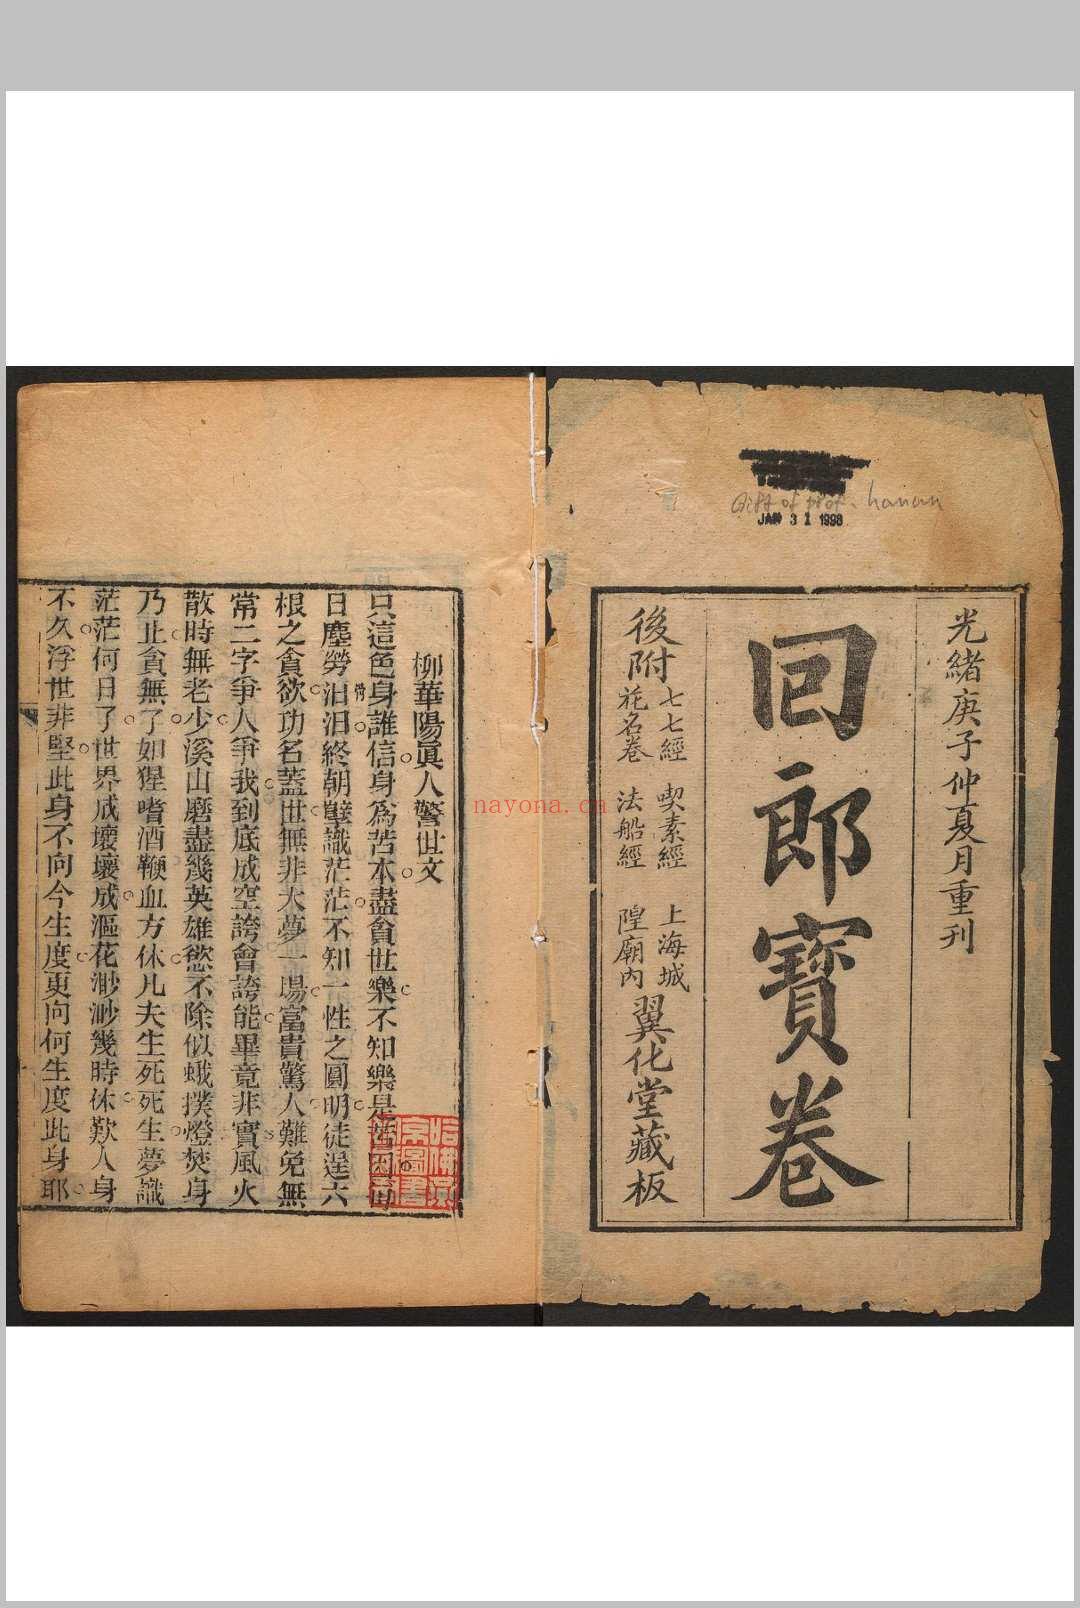 Gift of prof. hanan
JAN 31 1998
光緒庚子仲夏月重刊
回郎寶卷
後附
七七經 喫素經 上海城
花名卷 法船經 隍廟內
翼化堂藏板
柳華陽眞人警世文
只這色身誰信身爲苦本盡貪世樂不知樂是苦因可
日塵勞汨汨終朝孽識茫茫不知一性之圓明徒逞六
根之貪欲功名蓋世無非大夢一場富貴驚人難免無
常二字爭人爭我到底成空誇會誇能畢竟非實風火
散時無老少溪山磨盡幾英雄慾不除似蛾撲燈焚身
乃止貪無了如猩嗜酒鞭血方休凡夫生死死生夢識
茫茫何日了世界成壞壞成漚花渺渺幾時休歎人身
不久浮世非堅此身不向今生度更向何生度此身耶
nayona.cn